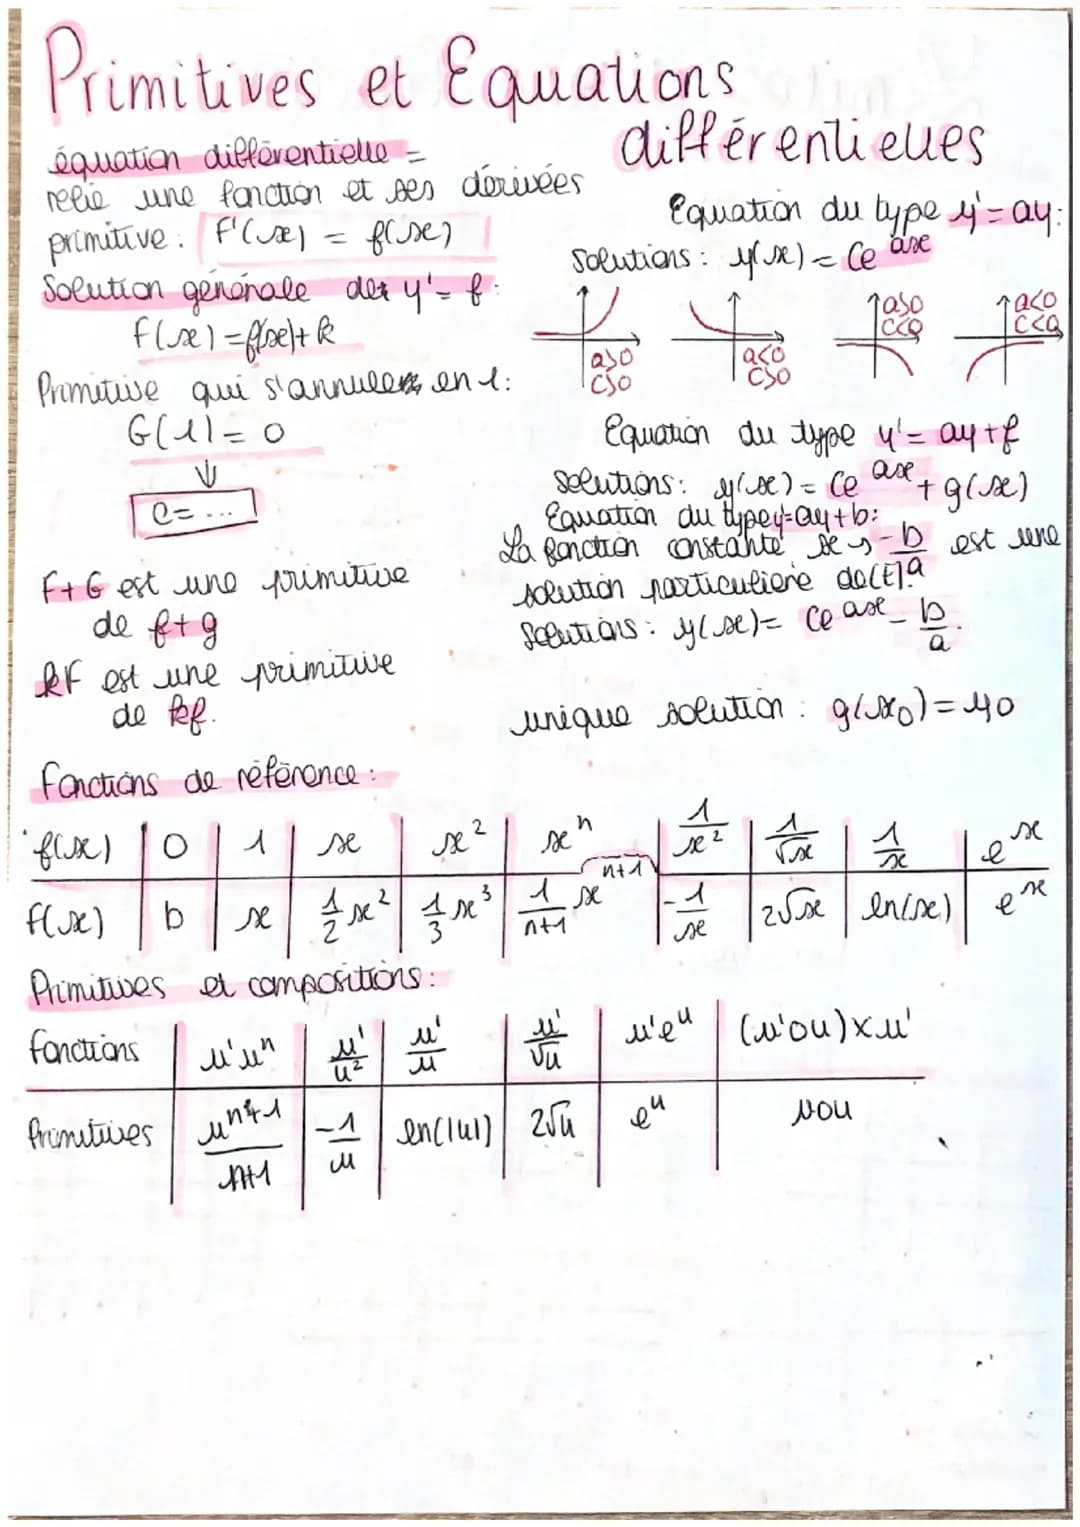 Primitives et Equations
différentielles
équation différentielle =
relie une fonction et ses dérivées
primitive : F'(x) = f(x)
Solution générale der y' = f :
F(x) = f(x) + k
Primitive qui s'annule en 1 :
G(1) = 0
↓
C = ...
F + G est une primitive
de f + g
kF est une primitive
de kf.
Equation du type y' = ay :
solutions : y(x) = Ce^ax
a>0 C>0
a<0 C>0
a>0 C<0
a<0 C<0
Equation du type y' = ay + f
solutions : y(x) = Ce^ax + g(x)
Equation du type y' = ay + b :
La fonction constante x → -b/a est une
solution particulière de (E).
Solutions : y(x) = Ce^ax - b/a.
unique solution : g(x₀) = y₀
Fonctions de référence :
f(x) | 0 | 1 | x | x² | xⁿ | 1/x² | 1/√x | 1/x | e^x
F(x) | b | x | 1/2 x² | 1/3 x³ | 1/(n+1) x^(n+1) | -1/x | 2√x | ln(x) | e^x
Primitives et compositions :
Fonctions | u'uⁿ | u'/u² | u'/u | u'/√u | u'e^u | (v'ou) × u'
Primitives | u^(n+1)/(n+1) | -1/u | ln(|u|) | 2√u | e^u | vou